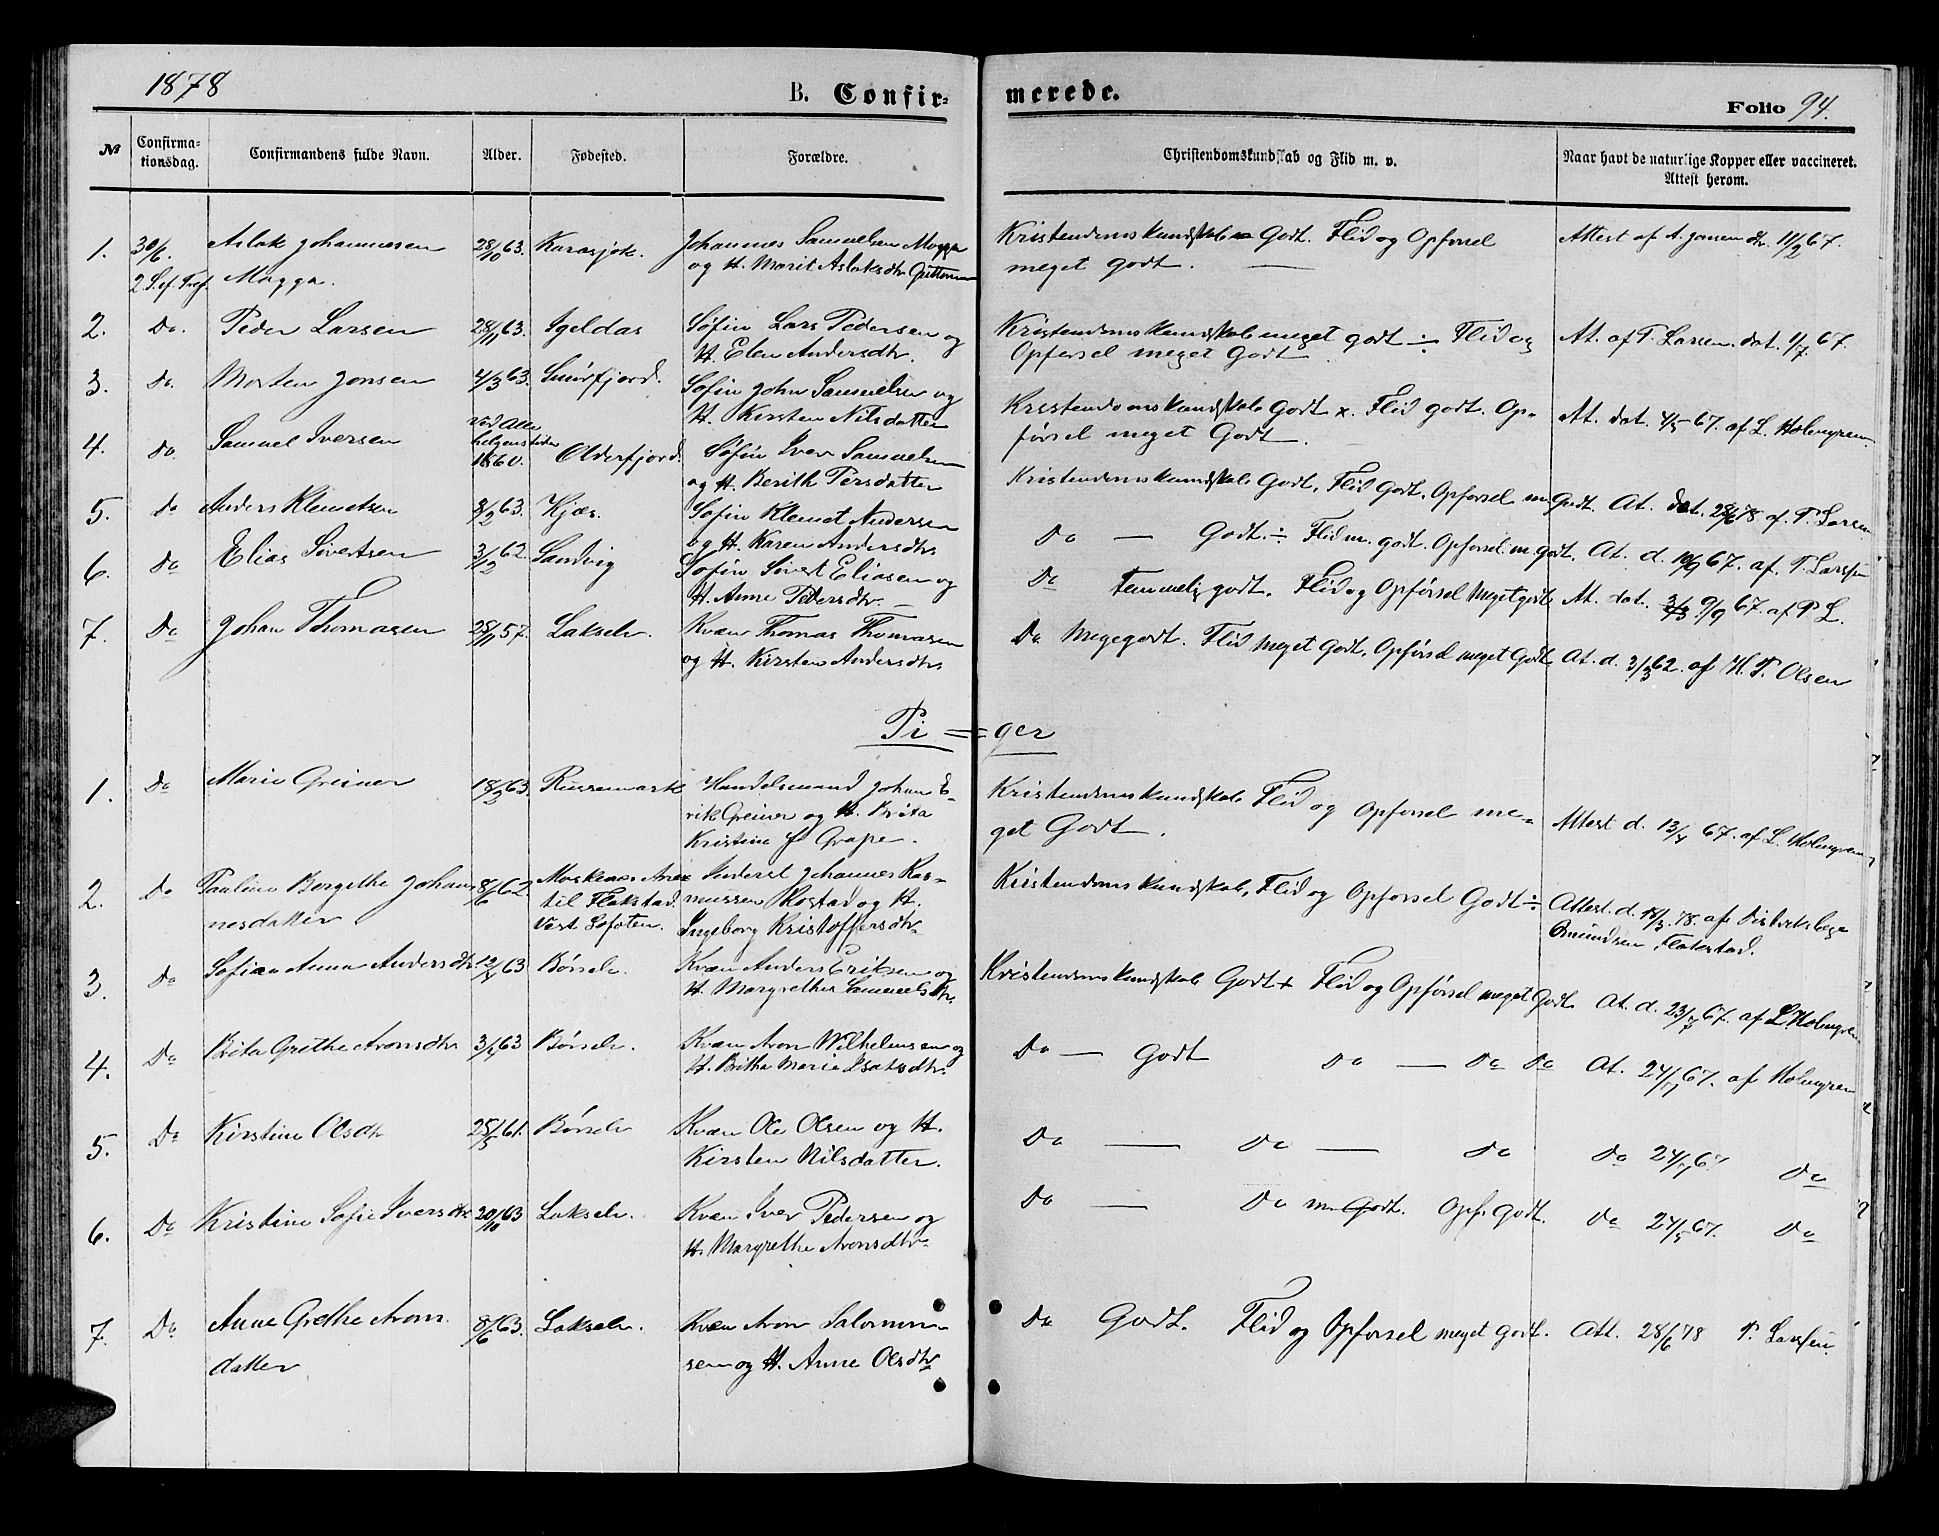 1878
B. Confirmerede.
Folio 94.
№ Confirmationsdag. Confirmandens fulde Navn. Alder. Fødested. Forældre. Christendomskundskab og Flid m. v. Naar havt de naturlige Kopper eller vaccineret. Attest herom.
1. 30/6. Aslak Johannesen 28/10 63. Karasjok. Johannes Samuelsen Magga Kristendomskundskab Godt. Flid og Opførsel Attest af A. Jansen dtr. 11/2 67.
2 S. ef. Tref. Magga. og H. Marit Aslaksdtr Guttorm meget godt.
2. Do. Peder Larsen 28/11 63. Igeldas Søfin Lars Pedersen og Kristendomskundskab meget godt ÷ Flid og At. af P. Larsen. dat. 1/7 67.
H. Elen Andersdtr. Opførsel meget Godt
3. Do. Morten Jonsen 4/3 63. Smörfjord. Søfin John Samuelsen og Kristendomskundskab Godt x. Flid godt. Op- At. dat. 4/5 67. af L. Holmgren
H. Kirsten Nilsdatter førsel meget Godt.
4. Do. Samuel Iversen Ved Alle helgenstider 1860. Olderfjord. Søfin Iver Samuelsen Kristendomskundskab Godt, Flid Godt, Opførsel m. Godt. At. dat. 28/6 78 af. P. Larsen
og H. Berith Persdatter
5. Do Anders Klemetsen 3/2 63. Kjæs. Søfin Klemet Andersen Do — Godt ÷ Flid m. godt. Opførsel m godt. At. d. 10/9 67. af. P. Larssen
og H. Karen Andersdtr
6. Do Elias Sivertsen 3/12 62. Sandvig Søfin Sivert Eliasen og Do Temmelig godt. Flid og Opførsel Meget godt At. dat. 9/9 67. af P L.
H. Anne Pedersdtr. —
7. Do Johan Thomasen 28/11 57. Lakselv. Kvæn Thomas Thomasen Do Meget godt. Flid Meget Godt, Opførsel meget Godt, At. d. 3/3 62. af H. P. Olsen
og H. Kirsten Andersdtr
Pi = ger
1. Do Maria Greiner 18/2 63. Russemark Handelsmand Johan E- Kristendomskundskab Flid og Opførsel me- Attest d. 13/5 67. af L. Holmgren
rik Greiner og H. Brita get Godt.
Kristine f Grape.
2. Do Pauline Borgithe Johan 8/6 62 Moskenes Anex Inderst Johannes Ras- Kristendomskundskab, Flid og Opførsel Godt ÷ Attest. d. 18/3 78. af. Distriktslæge
nesdatter til Flakstad. mussen Rostad og H. Amundsen, Flakstad.
Vest Lofoten. Ingeborg Kristoffersdtr
3. Do Sofia Anna Andersdtr 12/4 63 Børselv. Kvæn Anders Eriksen og Kristendomskundskab Godt + Flid og Opførsel meget Godt At. d. 23/7 67. af L Holmgren
H. Margrethe Samuelsdtr.
4. Do Brita Grethe Aronsdtr 3/4 63 Børselv. Kvæn Aron Wilhelmsen og Do — Godt Do — Do Do At. 24/7 67. af Holmgren
H. Britha Maria Isaksdtr.
5. Do Kirstine Olsdtr 25/5 61. Børselv Kvæn Ole Olsen og H. Do — Do — Do Do 24/7 67 Do
Kirsten Nilsdatter.
6. Do Kristine Sofie Iversdtr 20/10 63 Lakselv. Kvæn Iver Pedersen og Do — Do m. Godt. Opf. Godt. Do 24/5 67. Do
H. Margrethe Aronsdtr
7. Do Anne Grethe Arons 8/6 63. Lakselv. Kvæn Aron Salomon Do Godt. Flid og Opførsel meget godt. Att. 28/6 78 P. Larssen.
datter sen og H. Anne Olsdtr